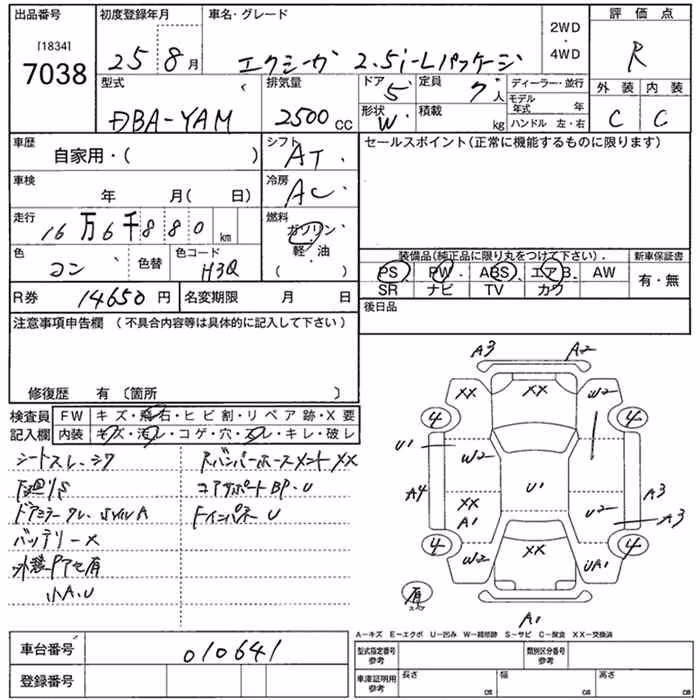 出品番号 初度登録年月 車名・グレード 2WD・4WD 評価点
[1834]
7038 25年8月 エクシーガ 2.5i-Lパッケージ R
型式 排気量 ドア 定員 ディーラー・並行 外装 内装
DBA-YAM 2500cc 5 7人 モデル年式 年 C C
形状 W 積載 kg ハンドル 左・右
車歴 シフト セールスポイント(正常に機能するものに限ります)
自家用・( ) AT
車検 冷房
年 月( 日) AC
走行 燃料
16万6千880km ガソリン・軽・油 ( )
色 色替 色コード 装備品(純正品に限り丸をつけて下さい). 新車保証書
コン H3Q PS PW ABS エアB AW 有・無
SR ナビ TV カワ
R券 14650円 名変期限 月 日 後日品
注意事項申告欄 (不具合内容等は具体的に記入して下さい)
修復歴 有 〔箇所 〕
検査員 FW キズ・飛石・ヒビ割・リペア跡・X要
記入欄 内装 キズ・汚レ・コゲ・穴・スレ・キレ・破レ
シートスレ・シワ Rバンパーホースメント XX
下廻りS コアサポートBP.U
ドアミラー
バッテリーX
外装 有
小A.U
A3 A2
XX XX W2
4 4
U1 W2
A4 U1 A3
XX W2 A3
A1
4 4
W2 XX UA1
スペア
A1
A-キズ E-エクボ U-凹み W-補修跡 S-サビ C-腐食 XX-交換済
車台番号 010641
型式指定番号 参考 類別区分番号 参考
登録番号
車庫証明用 参考 長さ cm 幅 cm 高さ cm